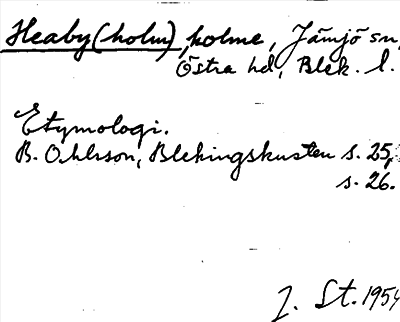 Heaby(holm), holme, Jämjö sn,
Östra hd, Blek. l.
Etymologi.
B. Ohlsson, Blekingskusten s. 25,
s. 26.
J. St. 1954